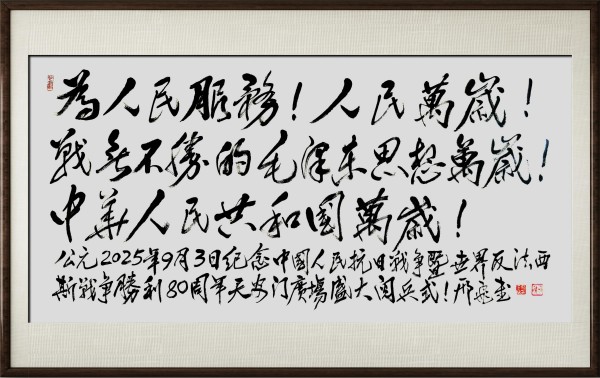 為人民服務！人民萬歲！
戰無不勝的毛澤东思想萬歲！
中華人民共和國萬歲！
公元2025年9月3日纪念中國人民抗日戰争暨世界反法西
斯戰争勝利80周年天安门廣場盛大阅兵式！邢飛書